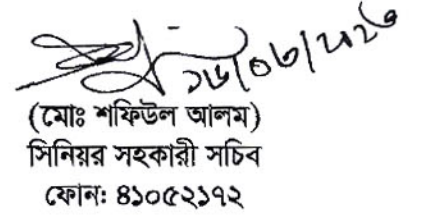 ১৬/০৬/২০২৬
(মোঃ শফিউল আলম)
সিনিয়র সহকারী সচিব
ফোন: ৪১০৫২১৭২